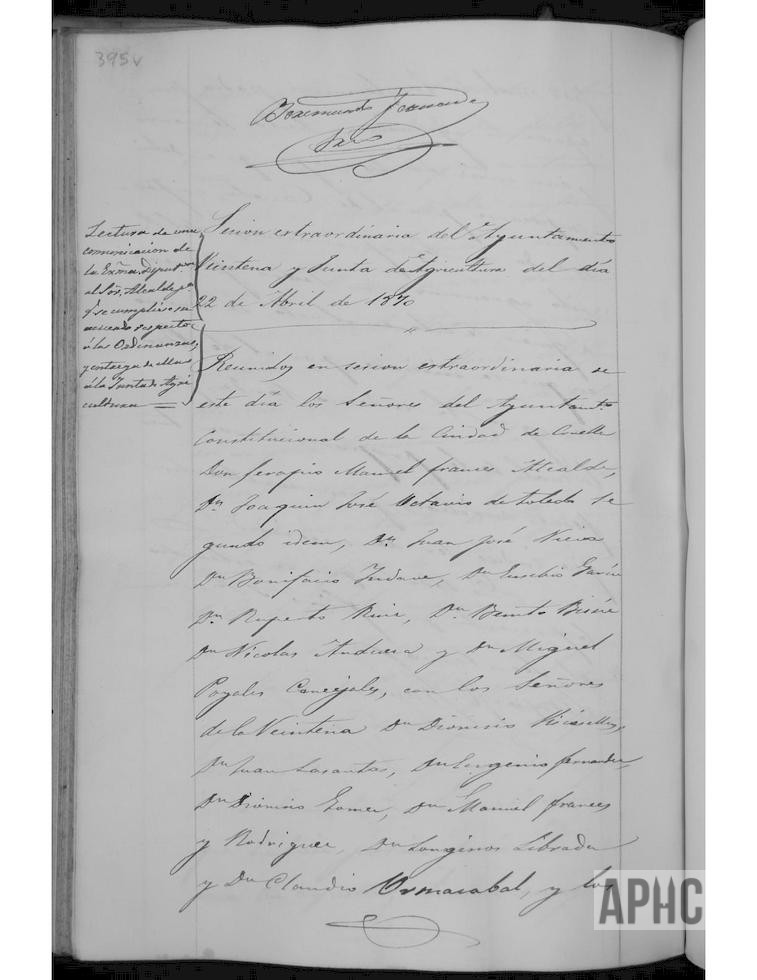 395v
Lectura de una
comunicacion de
la Exma. Diputon
al Sor. Alcalde pa
qe se cumpliese su
acuerdo respecto
á las Ordenanzas,
y entrega de ellas
á la Junta de Agri
cultura
Sesion extraordinaria del Ayuntamiento
Veintena y Junta de Agricultura del día
22 de Abril de 1870
Reunidos en sesion extraordinaria de
este día los Señores del Ayuntamto
Constitucional de la Ciudad de Corella
Don Serapio Manuel frances Alcalde,
Dn Joaquin José Octavio de toledo se
gundo idem, Dn Juan José
Dn Bonifacio, Dn Eusebio Garcia
Dn Ruperto Ruiz, Dn Benito
Dn Nicolas Andueza y Dn Miguel
Concejales, con los Señores
de la Veintena Dn Dionisio
Dn Juan Lasantas, Dn Eugenio fernandez,
Dn Dionisio Gomez, Dn Manuel frances
y Rodriguez, Dn Longinos Librada
y Dn Claudio Ormazabal, y los
APHC